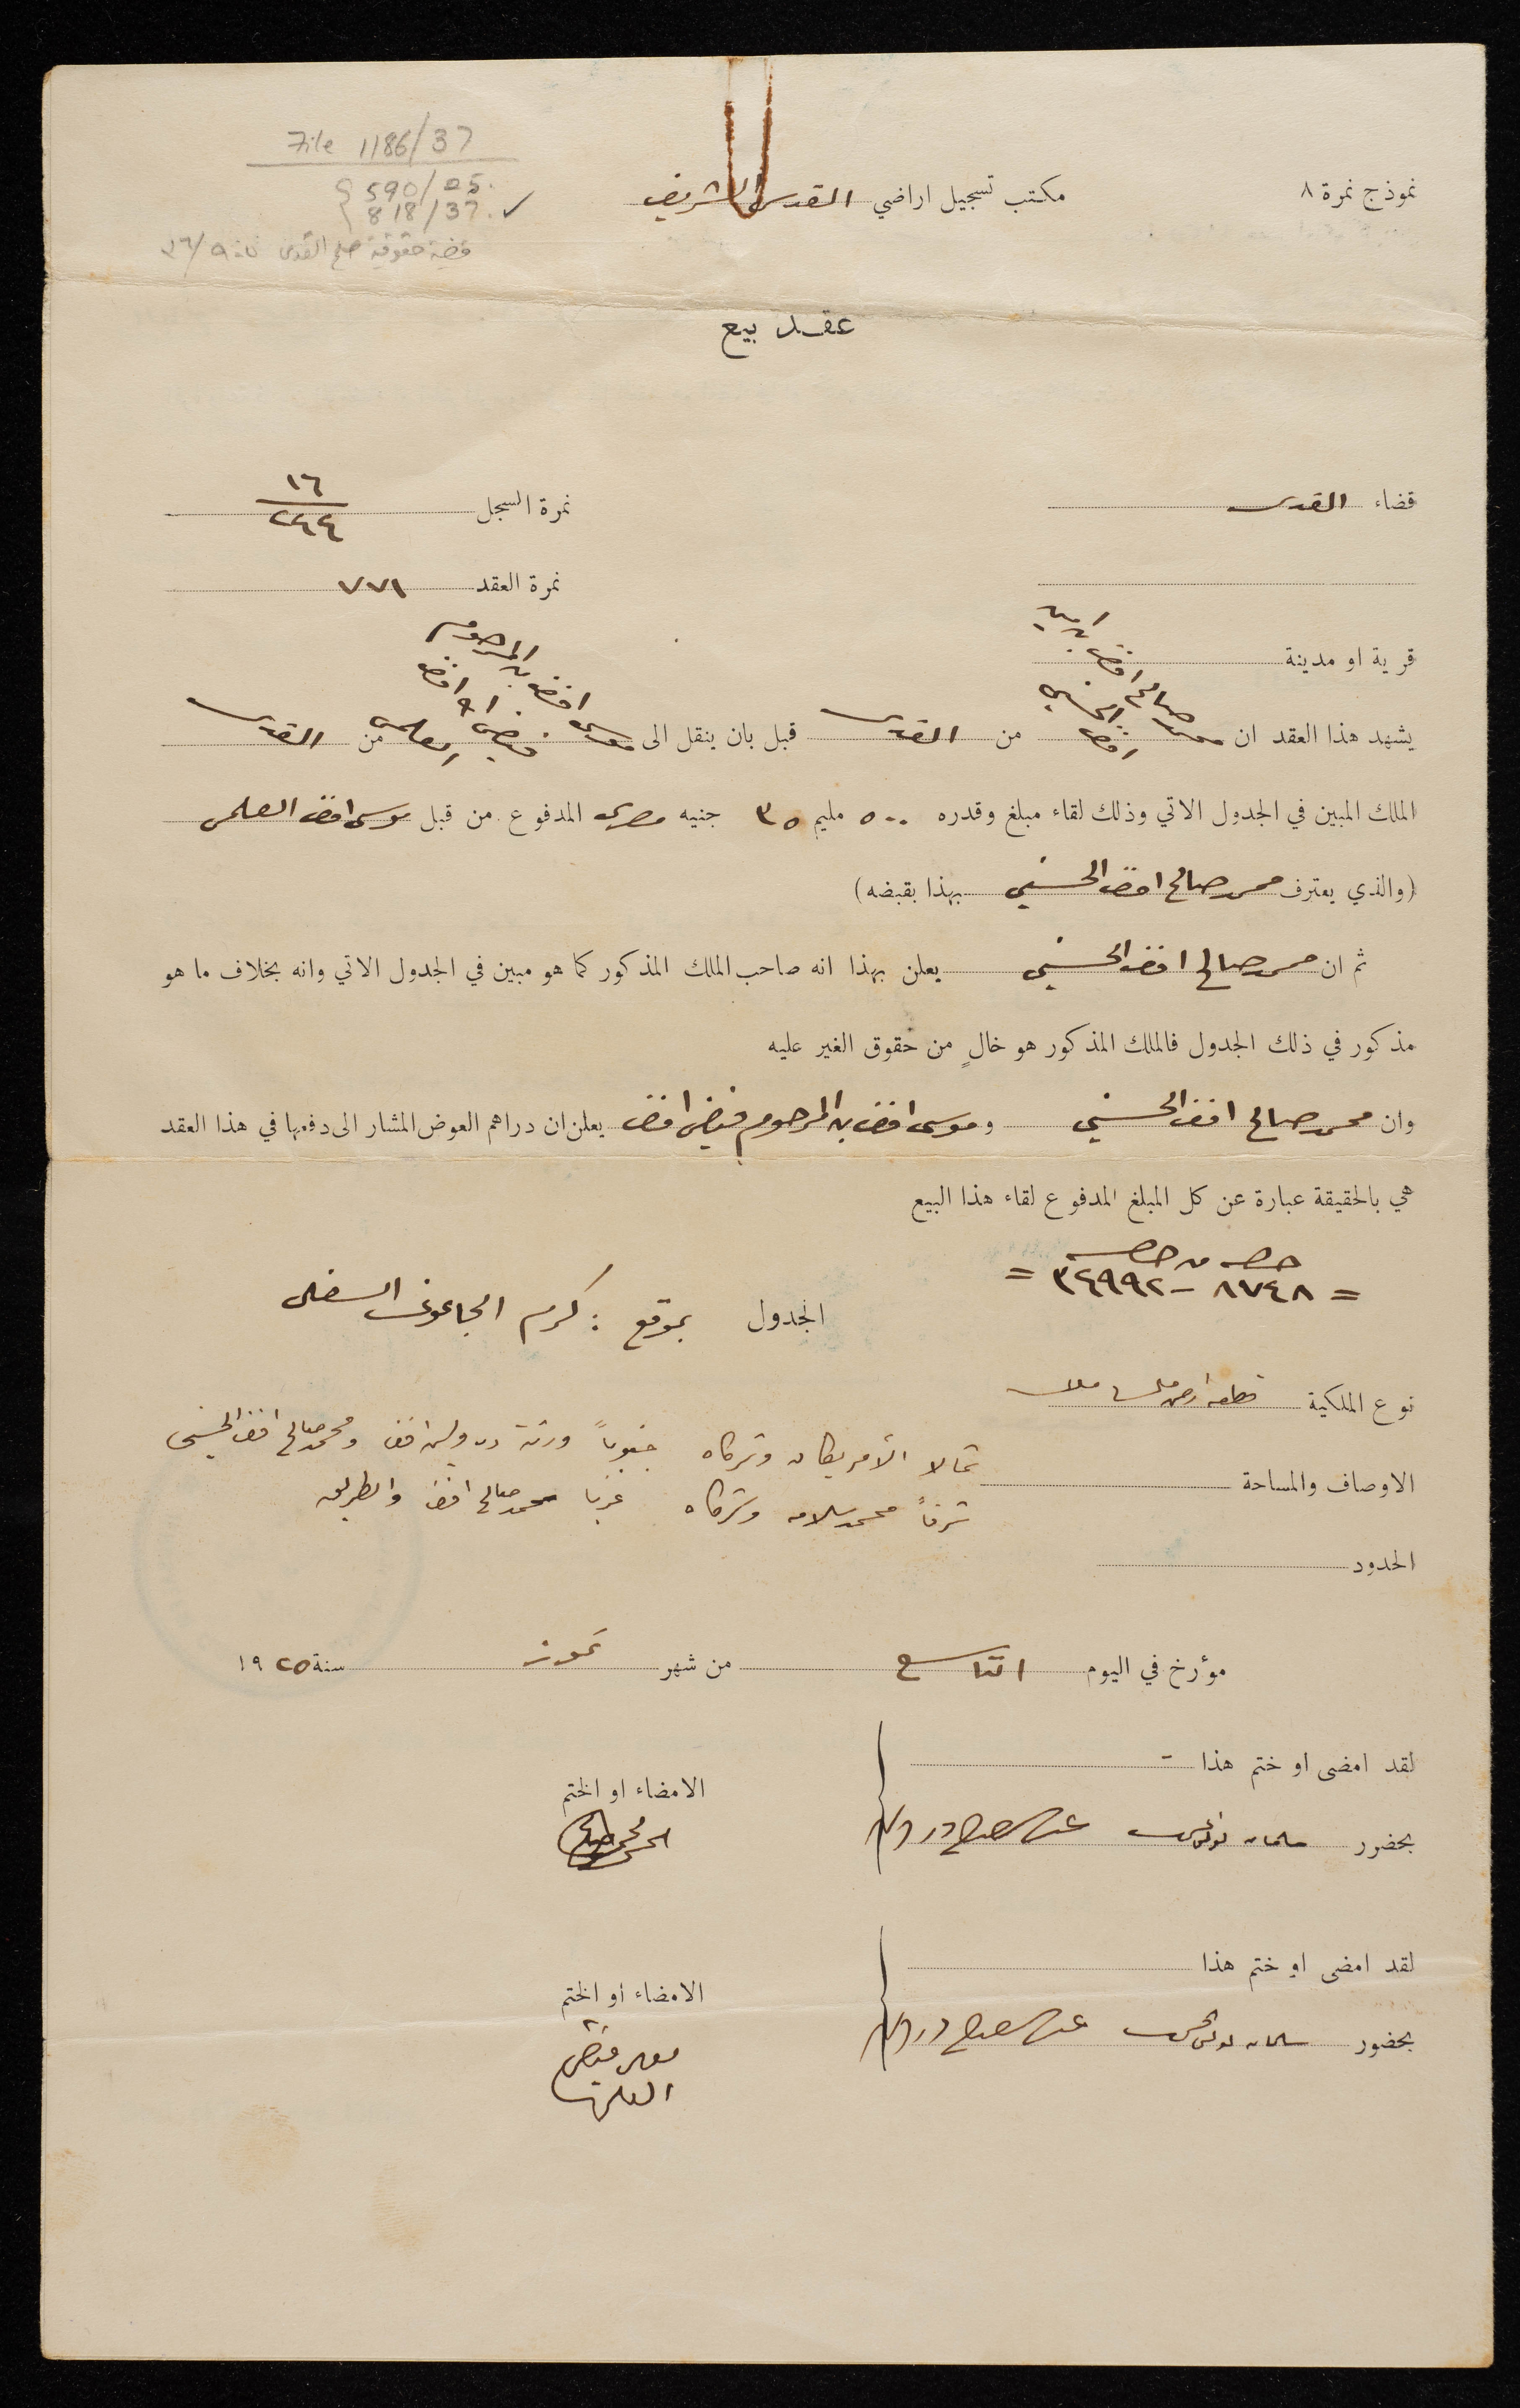 File 1186/37
590/25.
818/37. ✓
قضية حقوقية صلح القدس
نموذج نمرة ٨
مكتب تسجيل اراضي القدس الشريف
عقد بيع
قضاء القدس
نمرة السجل ١٦/٢٤٤
نمرة العقد ٧٧١
قرية او مدينة
يشهد هذا العقد ان محمد صالح افندي بن امين افندي الحسيني من القدس قبل بان ينقل الى موسى افندي بن المرحوم فيض الله افندي العلمي من القدس
الملك المبين في الجدول الاتي وذلك لقاء مبلغ وقدره ٥٠٠ مليم ٣٥ جنيه مصري المدفوع من قبل موسى افندي العلمي
(والذي يعترف محمد صالح افندي الحسيني بهذا بقبضه)
ثم ان محمد صالح افندي الحسيني يعلن بهذا انه صاحب الملك المذكور كما هو مبين في الجدول الاتي وانه بخلاف ما هو
مذكور في ذلك الجدول فالملك المذكور هو خالٍ من حقوق الغير عليه
وان محمد صالح افندي الحسيني وموسى افندي بن المرحوم فيضي افندي يعلن ان دراهم العوض المشار الى دفعها في هذا العقد
هي بالحقيقة عبارة عن كل المبلغ المدفوع لقاء هذا البيع
حصه من حصه
= ٨٧٤٨ - ٣٤٩٩٢ =
الجدول بموقع : كرم الجاعوني السفلى
نوع الملكية قطعة ارض ملك
الاوصاف والمساحة
شمالا الأمريكان وشركاه جنوباً ورثة درويش افندي ومحمد صالح افندي الحسيني
شرقاً محمد سلامه وشركاه غربا محمد صالح افندي والطريق
الحدود
مؤرخ في اليوم التاسع من شهر تموز سنة ١٩٢٥
لقد امضى او ختم هذا
الامضاء او الختم
بحضور سليمان
محمد صالح الحسيني
لقد امضى او ختم هذا
الامضاء او الختم
بحضور سليمان
موسى فيضي
العلمي